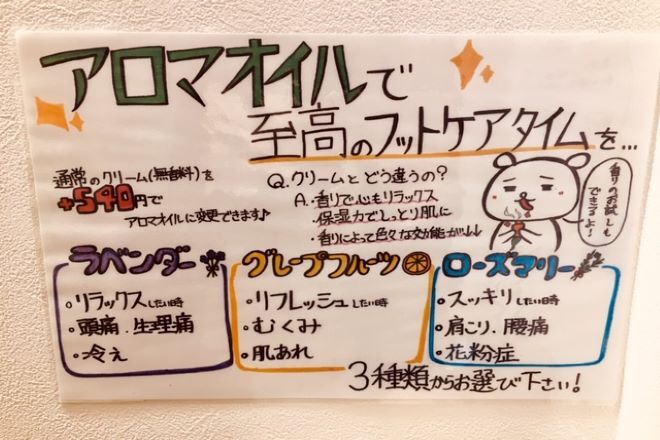 アロマオイルで
至高のフットケアタイムを...
通常のクリーム(無香料)を
+540円で
アロマオイルに変更できます♪
Q.クリームとどう違うの?
A.・香りで心もリラックス
・保湿力でしっとり肌に
・香りによって色々な効能が↓↓↓
香りのお試しもできるよ!
ラベンダー
・リラックスしたい時
・頭痛.生理痛
・冷え
グレープフルーツ
・リフレッシュしたい時
・むくみ
・肌あれ
ローズマリー
・スッキリしたい時
・肩こり、腰痛
・花粉症
3種類からお選び下さい!